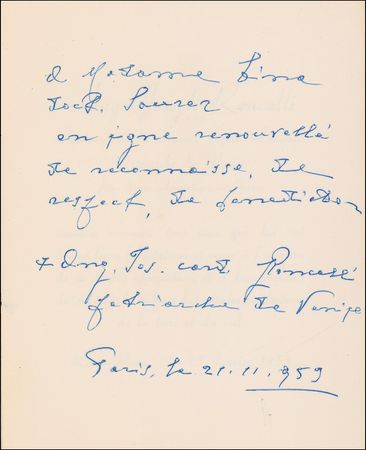 à Madame Lina
Doct. Sourez
en signe renouvellé
de reconnaisse, de
respect, de benediction
+ Ang. Jos. card. Roncalli
patriarche de Venise
Paris, le 21.11.959